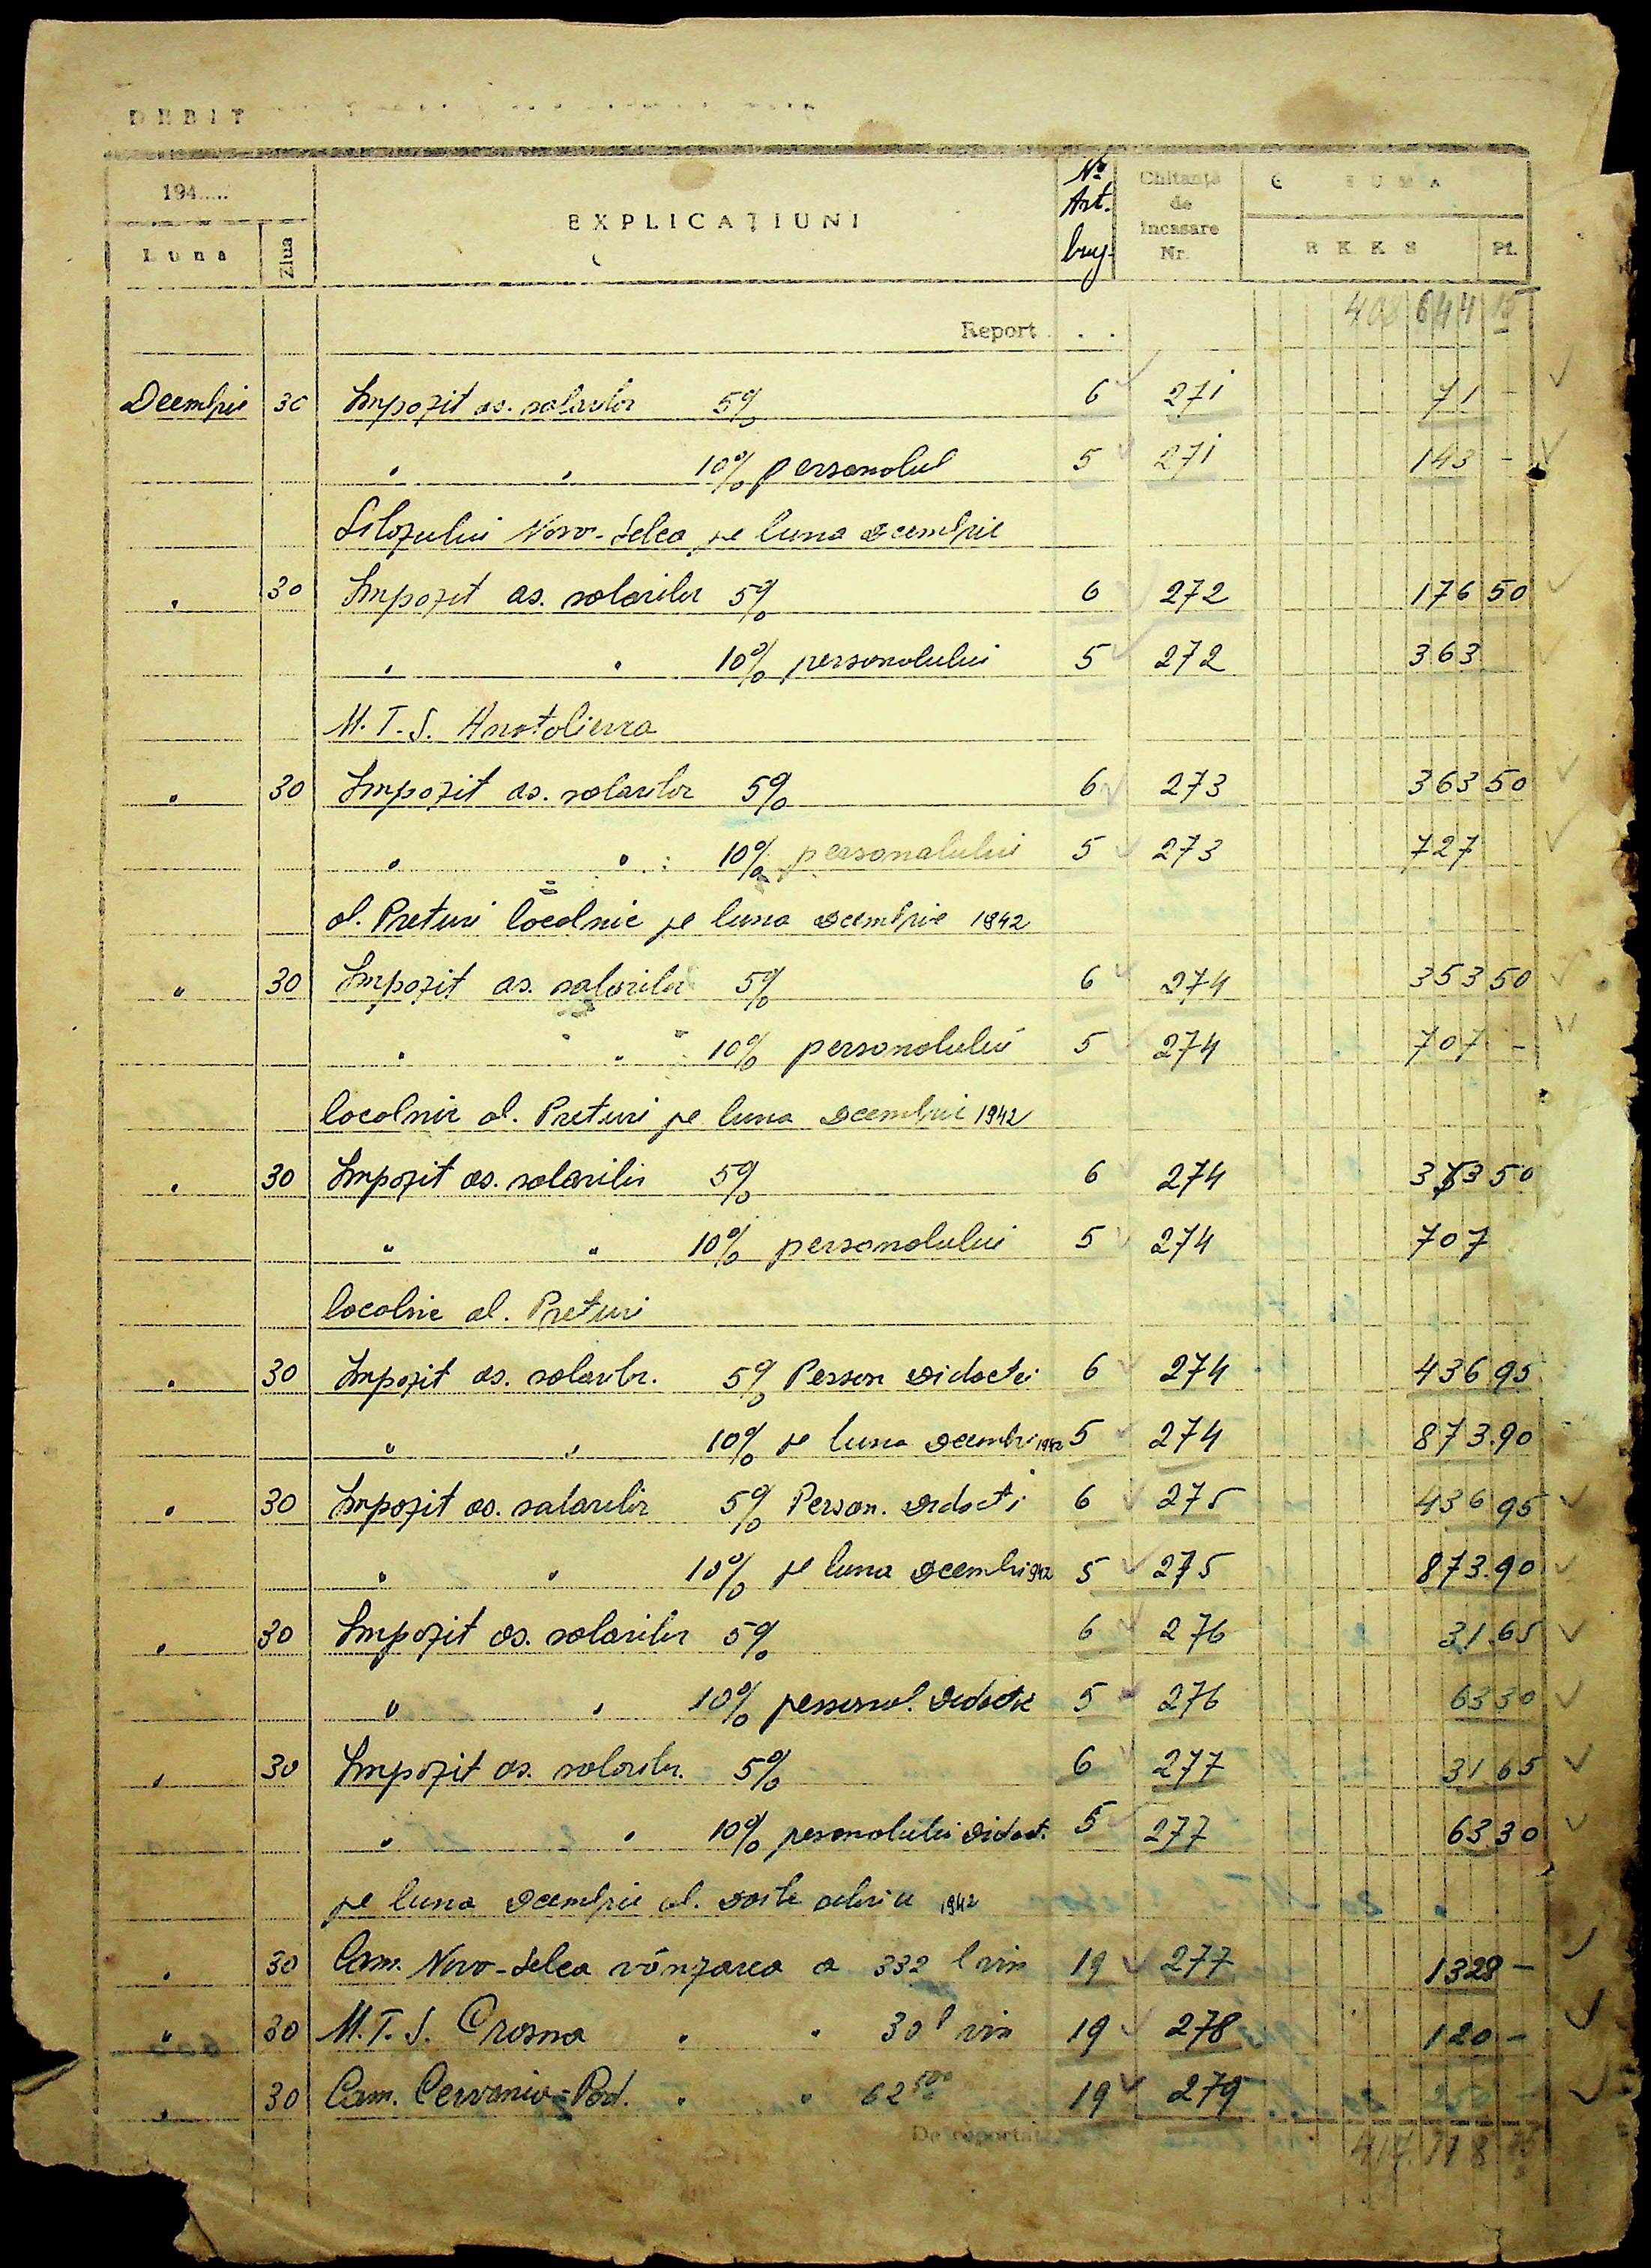 DEBIT
194.....
Luna
Ziua
EXPLICAȚIUNI
No Art. bug.
Chitanța de încasare Nr.
SUMA
RKKS
Pf.
Report . . 408 644 15
Decembrie 30 Impozit as. salariilor 5% 6 271 71 -
" " 10% personalul 5 271 143 -
Silozului Novo-Selca pe luna Decembrie
" 30 Impozit as. salariilor 5% 6 272 176 50
" " 10% personalului 5 272 363
M.T.S. Anatolievca
" 30 Impozit as. salariilor 5% 6 273 363 50
" " 10% personalului 5 273 727
al. Preturi localnic pe luna Decembrie 1942
" 30 Impozit as. salariilor 5% 6 274 353 50
" " 10% personalului 5 274 707 -
localnic al. Preturi pe luna Decembrie 1942
" 30 Impozit as. salariilor 5% 6 274 353 50
" " 10% personalului 5 274 707
localnic al. Preturi
" 30 Impozit as. salariilor. 5% Person Didactic 6 274 436 95
" " 10% pe luna Decembrie 1942 5 274 873.90
" 30 Impozit as. salariilor 5% Person. Didacti 6 275 436 95
" " 10% pe luna Decembri 942 5 275 873.90
" 30 Impozit as. salariilor 5% 6 276 31.65
" " 10% personal. Didactic 5 276 63 30
" 30 Impozit as. salariilor. 5% 6 277 31 65
" " 10% personalului Didact. 5 277 63 30
pe luna Decembrie al. 1942
" 30 Com. Novo-Selca vânzarea a 332 l vin 19 277 1328 -
" 30 M.T.S. Crasna " " 30 l vin 19 278 120 -
" 30 Com. Cervonio-Pod. " " 62 500 19 279 250 -
De reportat 417.718 75